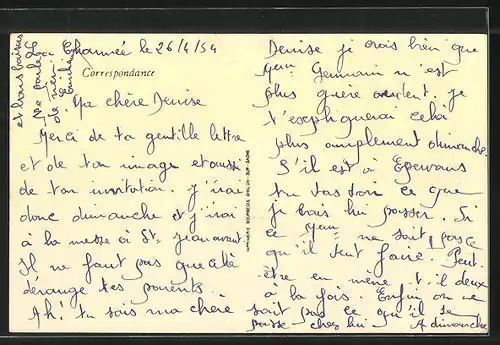 La Charmée le 26/4/54
Correspondance
Ma chère Denise
Merci de ta gentille lettre
et de ton image et aussi
de ton invitation. j'irai
donc dimanche et j'irai
à la messe à St Jean avant.
Il ne faut pas que cela
dérange tes parents.
Ah! tu sais ma chère
Denise je crois bien que
Germain n'est
plus guère je
t'expliquerai celà
plus amplement dimanche
S'il est à
tu tas dou ce que
je vais lui passer. Si
ce ne sait pas ce
qu'il veut faire. Peut-
être en même t. il deux
à la fois. Enfin on ne
sait pas ce qu'il se
passe chez lui A dimanche
et bons baisers
Ne parle
de rien
IMPRIMERIE BOURGEOIS